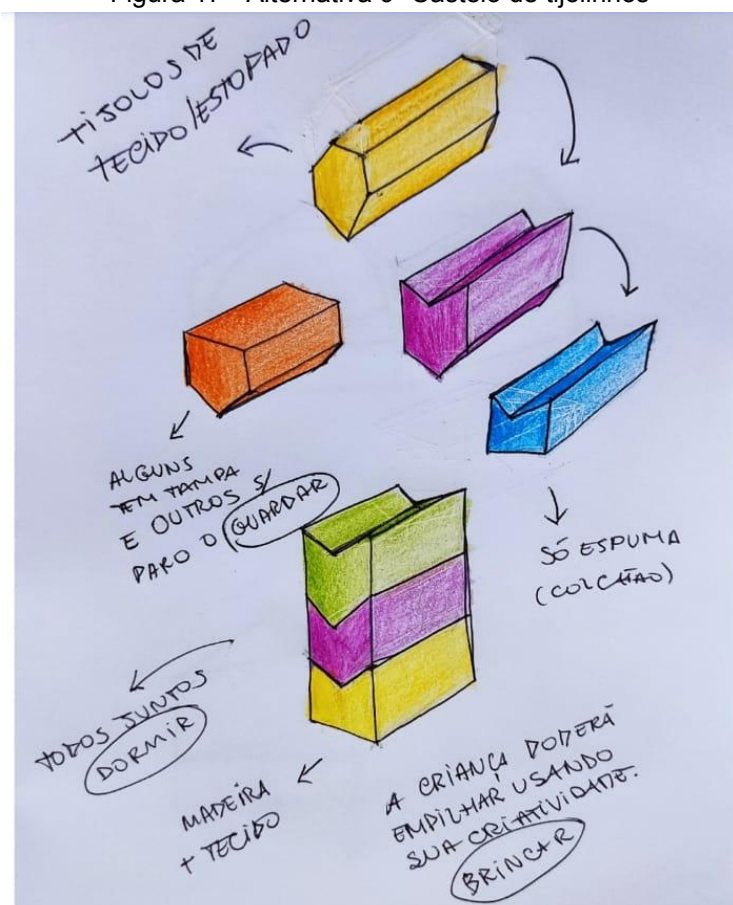 TIJOLOS DE
TECIDO/ESTOFADO
ALGUNS
TEM TAMPA
E OUTROS S/
PARO O GUARDAR
SÓ ESPUMA
(COLCHÃO)
TODOS JUNTOS
DORMIR
MADEIRA
+ TECIDO
A CRIANÇA PODERÁ
EMPILHAR USANDO
SUA CRIATIVIDADE.
BRINCAR